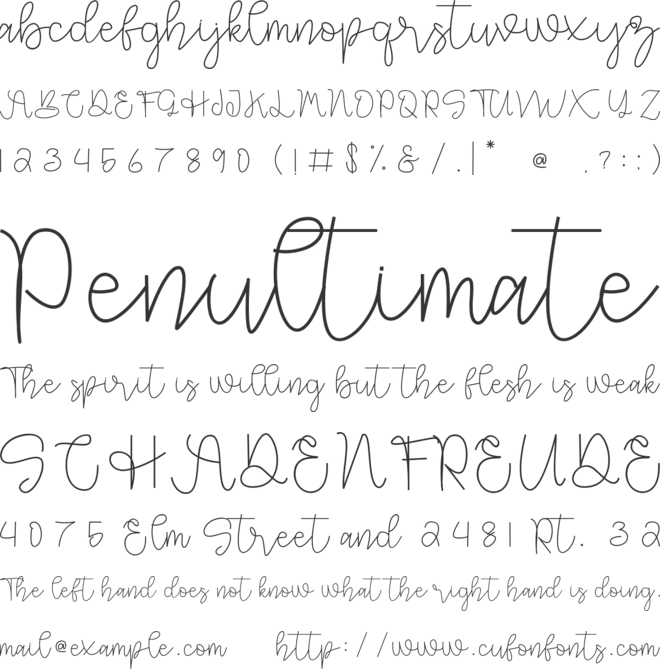 abcdefghijklmnopqrstuvwxyz
ABCDEFGHIJKLMNOPQRSTUVWXYZ
1234567890 (!#$%&/.|* @ .?::)
Penultimate
The spirit is willing but the flesh is weak
SCHADENFREUDE
4075 Elm Street and 2481 Rt. 32
The left hand does not know what the right hand is doing.
mail@example.com http://www.cufonfonts.com